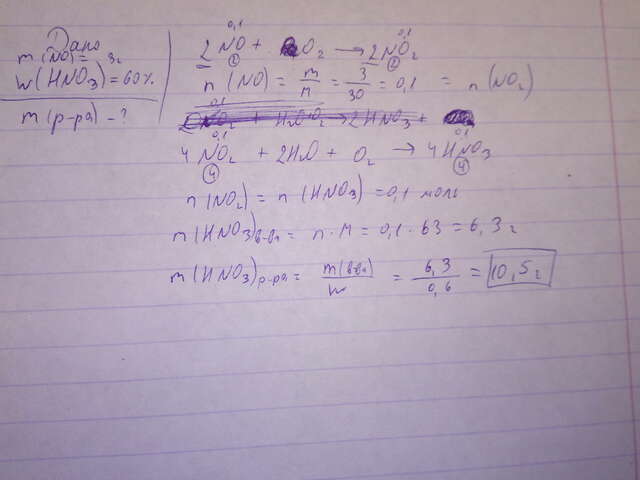 Дано
m(NO) = 3г
w(HNO3) = 60%.
m(р-ра) - ?
0,1 0,1
2NO + O2 → 2NO2
2 2
n(NO) = m/M = 3/30 = 0,1 = n(NO2)
0,1 0,1
4NO2 + 2H2O + O2 → 4HNO3
4 4
n(NO2) = n(HNO3) = 0,1 моль
n(HNO3)в-ва = n · M = 0,1 · 63 = 6,3г
m(HNO3)р-ра = m(в-ва)/w = 6,3/0,6 = 10,5г